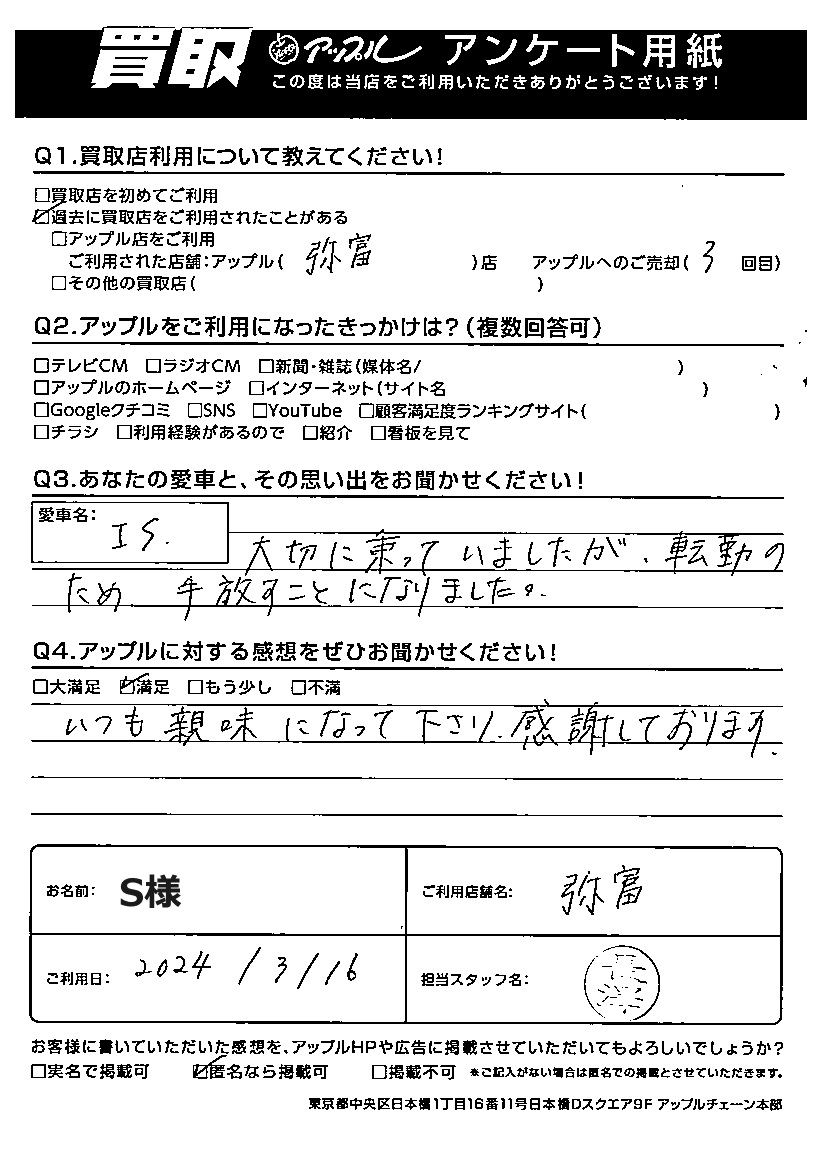 買取 アップル アンケート用紙
この度は当店をご利用いただきありがとうございます!
Q1.買取店利用について教えてください!
□買取店を初めてご利用
☑過去に買取店をご利用されたことがある
□アップル店をご利用
ご利用された店舗:アップル( 弥富 )店 アップルへのご売却( 3 回目)
□その他の買取店( )
Q2.アップルをご利用になったきっかけは?(複数回答可)
□テレビCM □ラジオCM □新聞・雑誌(媒体名/ )
□アップルのホームページ □インターネット(サイト名 )
□Googleクチコミ □SNS □YouTube □顧客満足度ランキングサイト( )
□チラシ □利用経験があるので □紹介 □看板を見て
Q3.あなたの愛車と、その思い出をお聞かせください!
愛車名: IS.
大切に乗っていましたが、転勤の
ため 手放すことになりました。
Q4.アップルに対する感想をぜひお聞かせください!
□大満足 ☑満足 □もう少し □不満
いつも親味になって下さり、感謝しております。
お名前: S様 ご利用店舗名: 弥富
ご利用日: 2024/3/16 担当スタッフ名:
お客様に書いていただいた感想を、アップルHPや広告に掲載させていただいてもよろしいでしょうか?
□実名で掲載可 ☑匿名なら掲載可 □掲載不可 ※ご記入がない場合は匿名での掲載とさせていただきます。
東京都中央区日本橋1丁目16番11号日本橋Dスクエア9F アップルチェーン本部